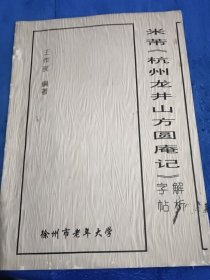 米芾《杭州龙井山方圆庵记》
解析
字帖
编著
徐州市老年大学